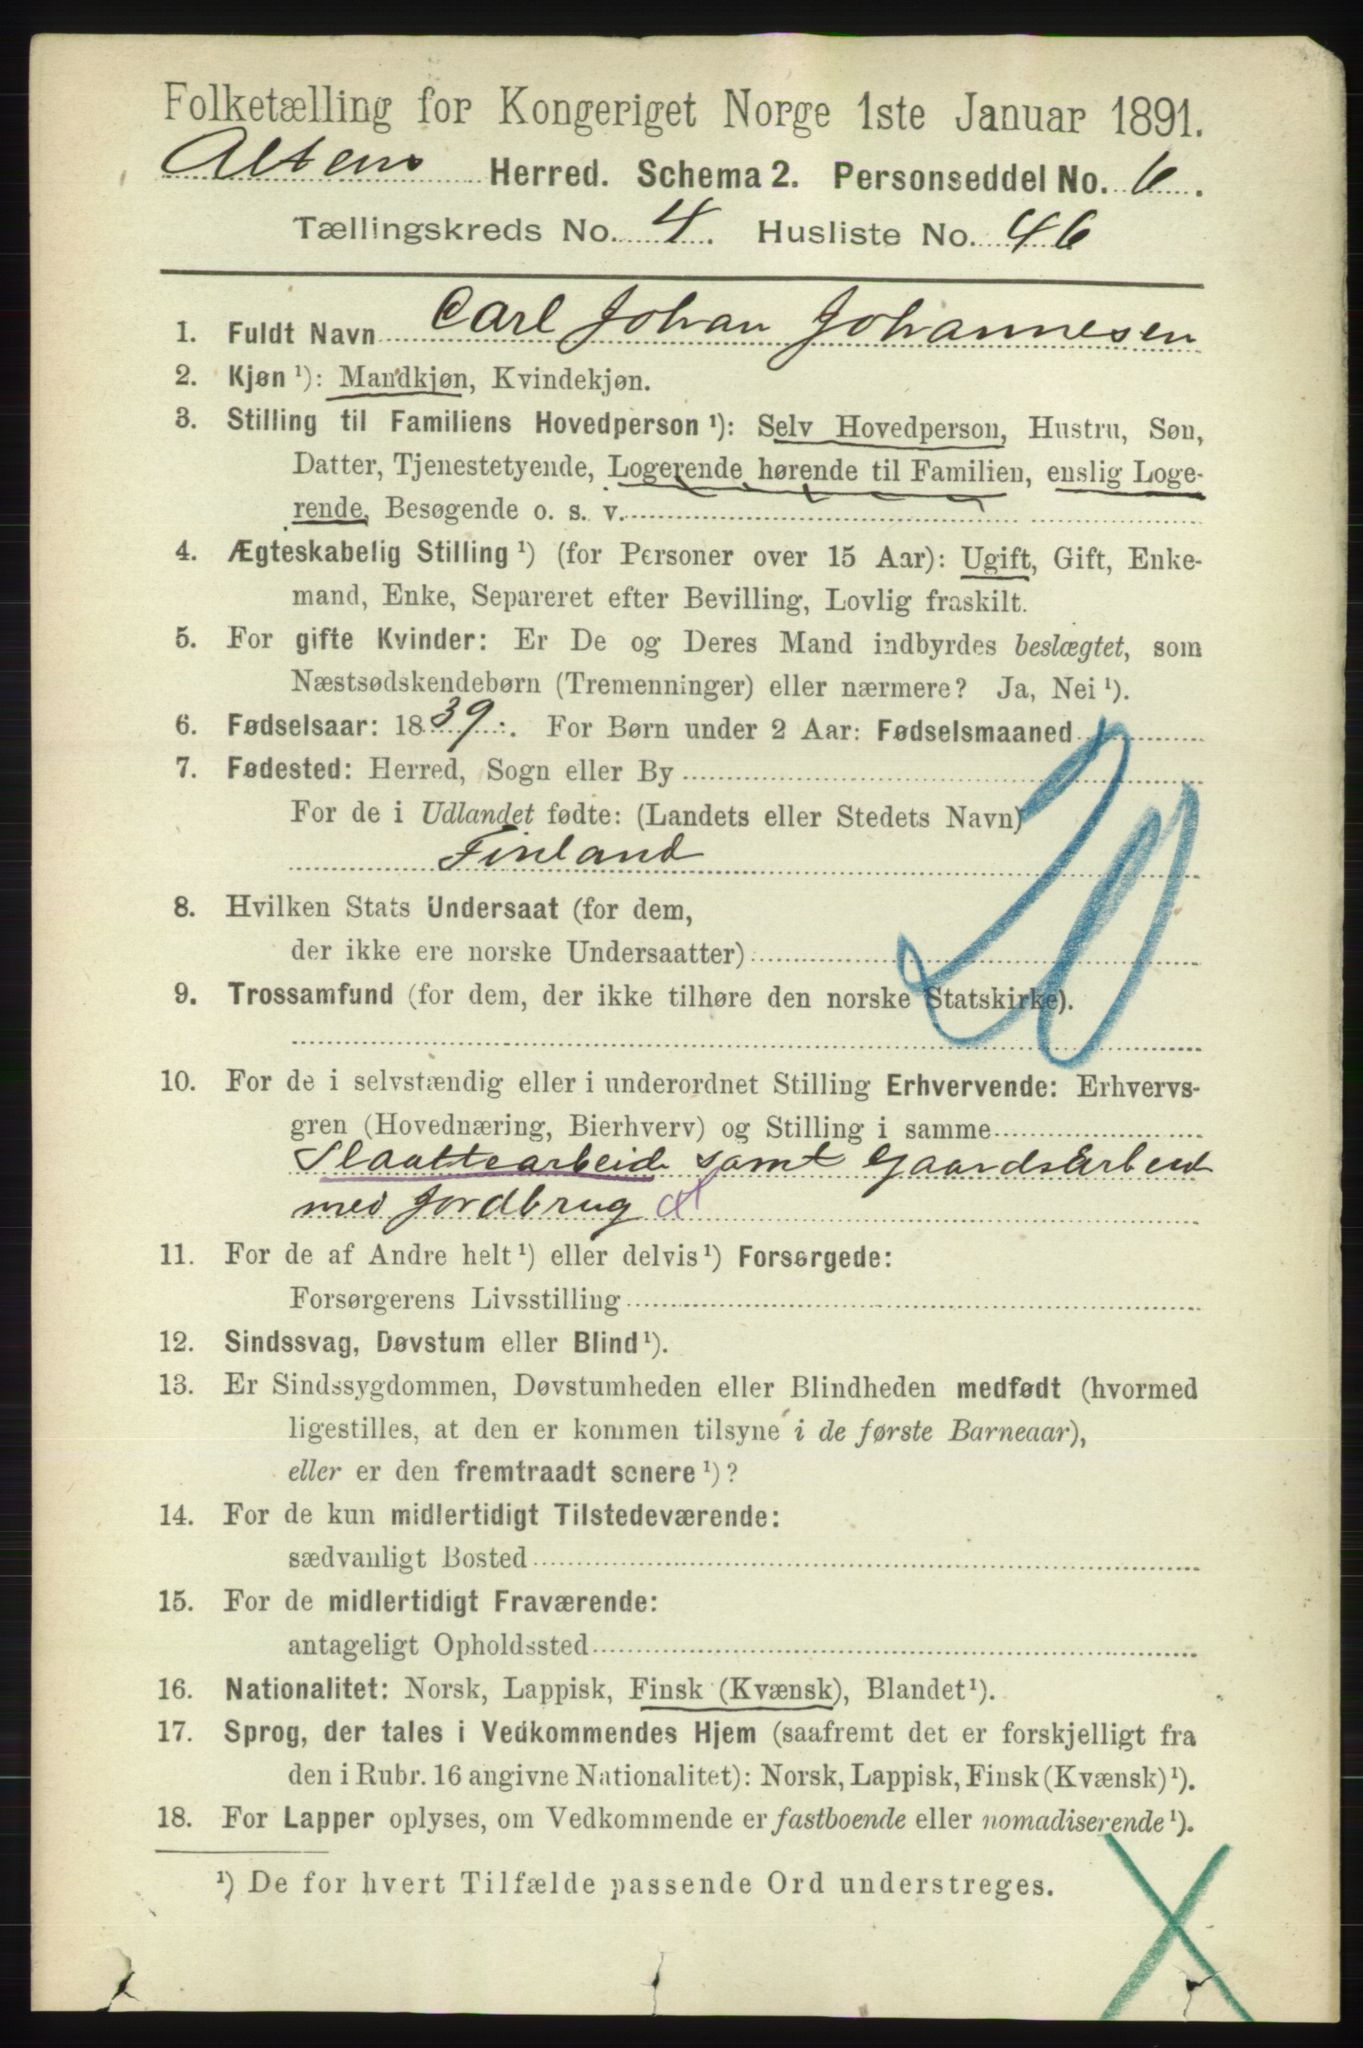 Folketælling for Kongeriget Norge 1ste Januar 1891.
Altens Herred. Schema 2. Personseddel No. 6.
Tællingskreds No. 4. Husliste No. 46
1. Fuldt Navn Carl Johan Johannesen
2. Kjøn ¹): Mandkjøn, Kvindekjøn.
3. Stilling til Familiens Hovedperson ¹): Selv Hovedperson, Hustru, Søn,
Datter, Tjenestetyende, Logerende hørende til Familien, enslig Loge-
rende, Besøgende o. s. v.
4. Ægteskabelig Stilling ¹) (for Personer over 15 Aar): Ugift, Gift, Enke-
mand, Enke, Separeret efter Bevilling, Lovlig fraskilt.
5. For gifte Kvinder: Er De og Deres Mand indbyrdes beslægtet, som
Næstsødskendebørn (Tremenninger) eller nærmere? Ja, Nei ¹).
6. Fødselsaar: 1839. For Børn under 2 Aar: Fødselsmaaned
7. Fødested: Herred, Sogn eller By
For de i Udlandet fødte: (Landets eller Stedets Navn)
Finland
20
8. Hvilken Stats Undersaat (for dem,
der ikke ere norske Undersaatter)
9. Trossamfund (for dem, der ikke tilhøre den norske Statskirke).
10. For de i selvstændig eller i underordnet Stilling Erhvervende: Erhvervs-
gren (Hovednæring, Bierhverv) og Stilling i samme
Slaattearbeide samt Gaardsarbeid
med Jordbrug
11. For de af Andre helt ¹) eller delvis ¹) Forsørgede:
Forsørgerens Livsstilling
12. Sindssvag, Døvstum eller Blind ¹).
13. Er Sindssygdommen, Døvstumheden eller Blindheden medfødt (hvormed
ligestilles, at den er kommen tilsyne i de første Barneaar),
eller er den fremtraadt senere ¹)?
14. For de kun midlertidigt Tilstedeværende:
sædvanligt Bosted
15. For de midlertidigt Fraværende:
antageligt Opholdssted
16. Nationalitet: Norsk, Lappisk, Finsk (Kvænsk), Blandet ¹).
17. Sprog, der tales i Vedkommendes Hjem (saafremt det er forskjelligt fra
den i Rubr. 16 angivne Nationalitet): Norsk, Lappisk, Finsk (Kvænsk) ¹).
18. For Lapper oplyses, om Vedkommende er fastboende eller nomadiserende ¹).
¹) De for hvert Tilfælde passende Ord understreges.